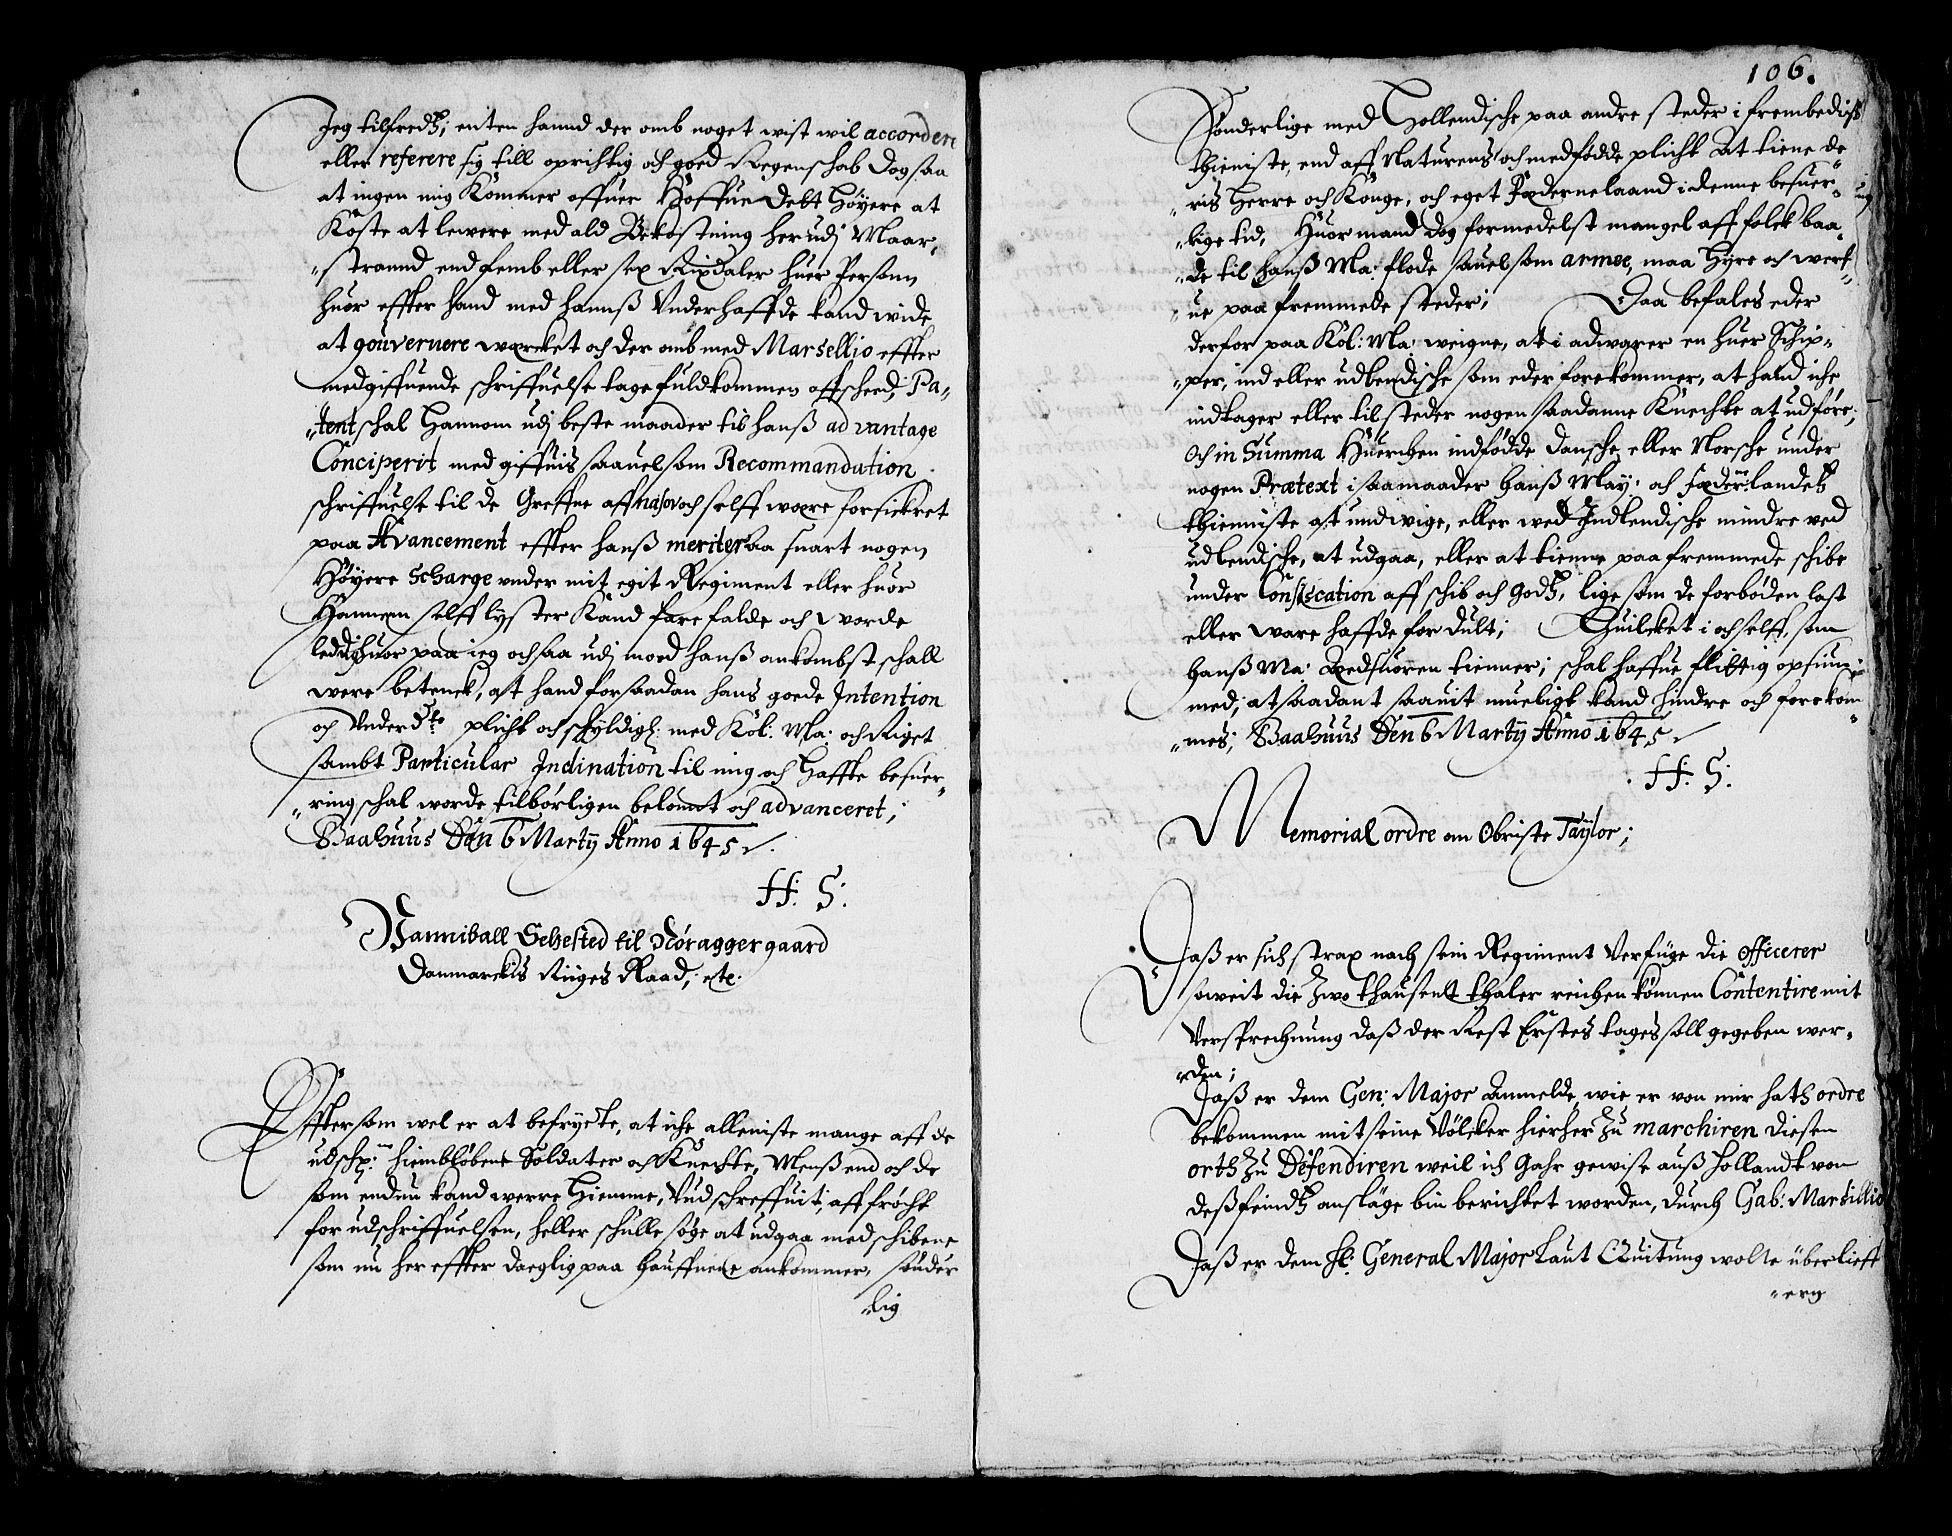 Jeg tilfredtz, enten hannd der omb noget wist wil accordere
eller referere sig till oprichtig och goed Regenschab dog saa
at ingen mig kommer offuer Hoffuedebt höyere at
Koste at levere med ald Bekostning herudj Maar„
„strannd end femb eller sex Rixdaler huer Persohn
huor effter hand med hannß Underhaffde kand wide
at gouvernere wercket och der omb med Marsellio effter
medgiffuende schriffuelse tage fuldkommen affscheed, Pa„
„tent schal Hannom udj beste maader til hanß advantage
Conciperit med giffuis saauelsom Recommandation
schriffuelse til de Greffue aff nason och selff wære forsickret
paa Avancement effter hanß meriter saa snart nogen
Höyere Scharge under mit egit Regiment eller huor
Hannem selff lyster Kand forefalde och worde
leddig huor paa ieg ochsaa udj moed hanß ankombst schall
were betenckt, at hand for saadan hans goede Intention
och underd:ste plicht och schyldigh: med Kól: Ma: och Riget
sambt Particular Indination til mig och hafft besuer„
„ring schal worde tilbörligen belönnt och advanceret;
Baahuus Den 6 Martij Anno 1645
H: S:
Hanniball Sehested til Nöraggergaard
Danmarckis Riiges Raad, etc.
Efftersom wel er at befrycte, at iche alleniste mange aff de
udschr: hiembløbene Soldater och Knechte, Menß end och de
som endnu kand werre hiemme, Udschreffuit, aff fröcht
for udschriffuelsen, heller schulle söge at udgaa med schibene
som nu her effter daeglig paa hauffnene ankommer, sönder
„lig
106.
Sönderlige med Hollendische paa andre steder i frembedisch
thieniste, end aff Naturens och medfödde plicht at tiene de„
„ris Herre och Konge, och eget Fædernelaand i denne besuer„
„lige tid, Huor mand dog formedelst mangel aff folck baa„
„de til hanß Ma: flode sauelsom armee, maa Hyre och werf„
„ue paa fremmede steder; Daa befales eder
derfor paa Kól: Ma: weigne, at i adwarer en huer Schip„
„per, ind eller udlendische som eder forekommer, at hand iche
indtager eller til steder nogen saadanne Knechte at udföre;
och in Summa Huerchen indfödde dansche eller Norsche under
nogen Prætext i saamaader hanß May: och fædernelandets
thienniste at undwige, eller wed Indlendische mindre ved
udlendische, at udgaa, eller at tienne paa fremmede schibe
under Confiscation aff schib och godtz, lige som de forböden last
eller ware haffde fordult; Huilcket i och selff, som
hanß Ma:Ædsuoren tienner; schal haffue flittig opsiun
med, at saadant saauit mueligt kand hindre och forekom„
„mes; Baahuus Den 6 Martij Anno 1645
H: S:
Memorial ordre om Obriste Taylor;
Daß er sich strax nach sein Regiment Verfüge die officerer
soweit die Zwo thausent thaler reichen können Contentire mit
Versprechnung daß der Rest Erstes tages soll gegeben wer„
„den;
Daß er dem Gen: Major Anmelde, wie er von mir hath ordre
bekommen mit seine Völcker hierher Zu marchiren diesen
orth Zu Defendiren weil ich Gahr gewise auß Hollandt von
deß feindtz anslåge bin berichtet worden, durch Gab: Marsillio
Daß er dem H: General Major Laut Quitung wolle überlieff
„ern